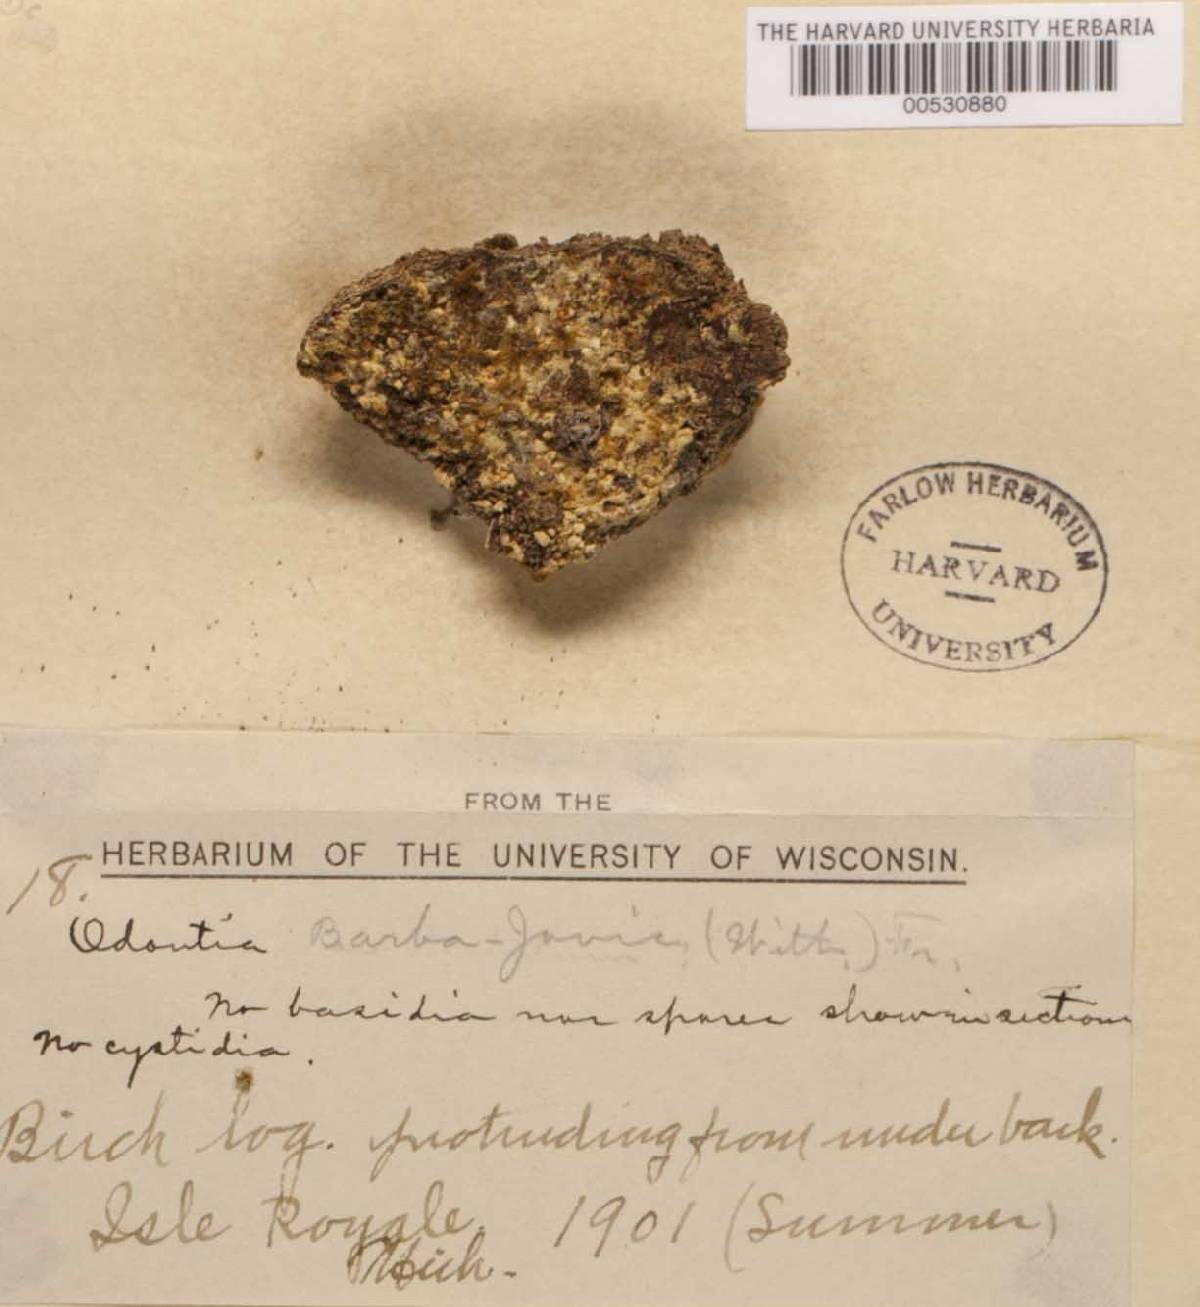 THE HARVARD UNIVERSITY HERBARIA
00530880
FARLOW HERBARIUM
HARVARD
UNIVERSITY
FROM THE
HERBARIUM OF THE UNIVERSITY OF WISCONSIN.
18.
Odontia Barba-Jovis, (With.) Fr.
No basidia nor spores shown in sections
No cystidia.
Birch log. protruding from under bark.
Isle Royale, 1901 (Summer)
Mich.